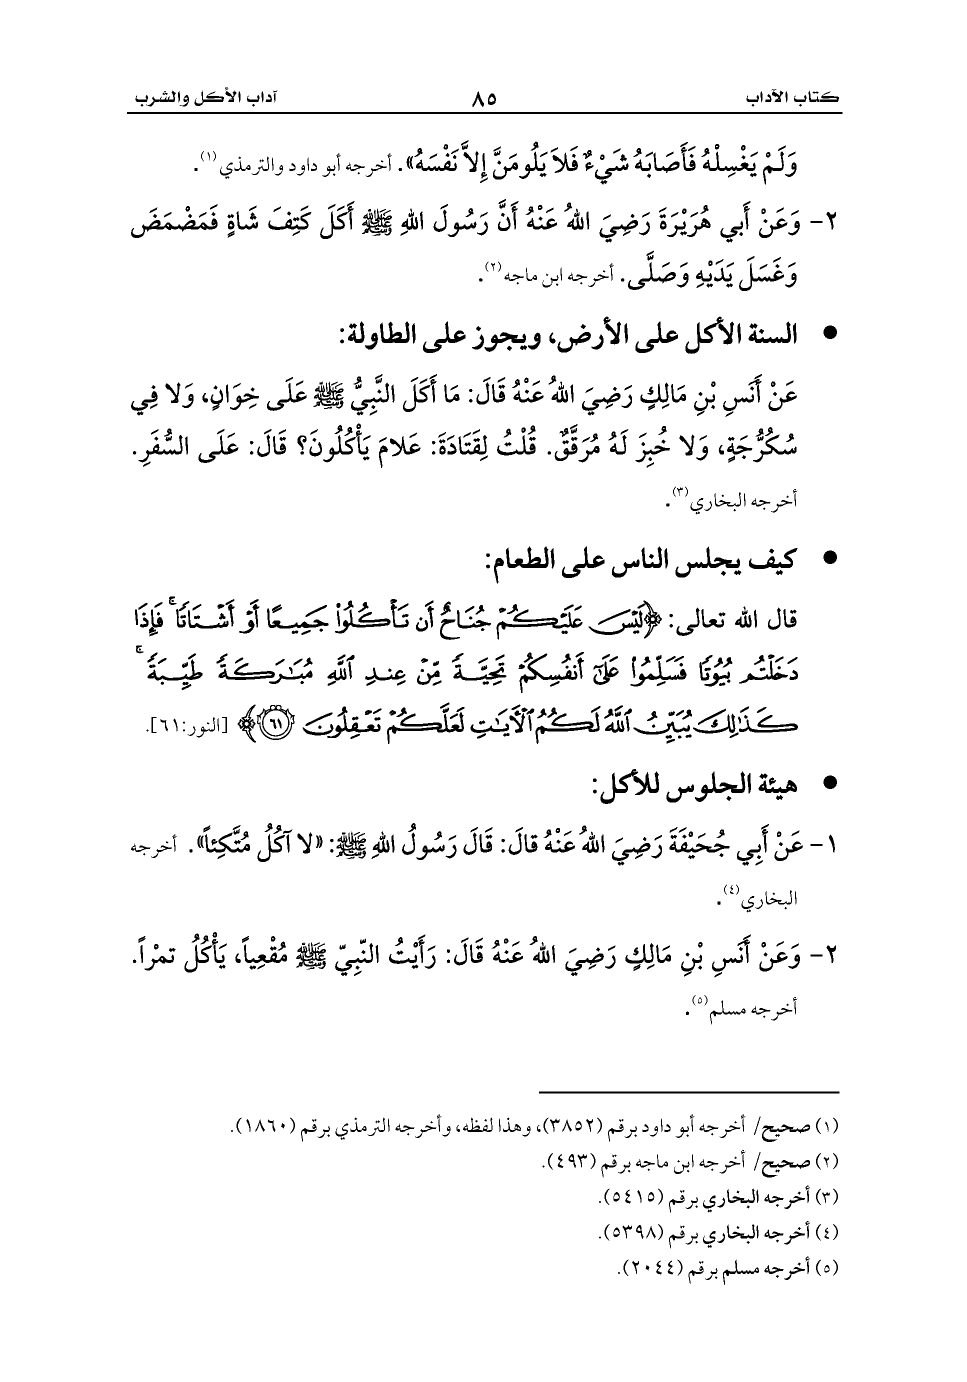 كتاب الآداب ٨٥ آداب الأكل والشرب
وَلَمْ يَغْسِلْهُ فَأَصَابَهُ شَيْءٌ فَلاَ يَلُومَنَّ إِلاَّ نَفْسَهُ». أخرجه أبو داود والترمذي(١).
٢- وَعَنْ أَبي هُرَيْرَةَ رَضِيَ اللهُ عَنْهُ أَنَّ رَسُولَ اللهِ ﷺ أَكَلَ كَتِفَ شَاةٍ فَمَضْمَضَ
وَغَسَلَ يَدَيْهِ وَصَلَّى. أخرجه ابن ماجه(٢).
● السنة الأكل على الأرض، ويجوز على الطاولة:
عَنْ أَنَسِ بْنِ مَالِكٍ رَضِيَ اللهُ عَنْهُ قَالَ: مَا أَكَلَ النَّبِيُّ ﷺ عَلَى خِوَانٍ، وَلا فِي
سُكُرُّجَةٍ، وَلا خُبِزَ لَهُ مُرَقَّقٌ. قُلْتُ لِقَتَادَةَ: عَلامَ يَأْكُلُونَ؟ قَالَ: عَلَى السُّفَرِ.
أخرجه البخاري(٣).
● كيف يجلس الناس على الطعام:
قال الله تعالى: ﴿لَيْسَ عَلَيْكُمْ جُنَاحٌ أَن تَأْكُلُوا۟ جَمِيعًا أَوْ أَشْتَاتًا ۚ فَإِذَا
دَخَلْتُم بُيُوتًا فَسَلِّمُوا۟ عَلَىٰٓ أَنفُسِكُمْ تَحِيَّةً مِّنْ عِندِ ٱللَّهِ مُبَٰرَكَةً طَيِّبَةً ۚ
كَذَٰلِكَ يُبَيِّنُ ٱللَّهُ لَكُمُ ٱلْآيَٰتِ لَعَلَّكُمْ تَعْقِلُونَ ٦١﴾ [النور:٦١].
● هيئة الجلوس للأكل:
١- عَنْ أَبِي جُحَيْفَةَ رَضِيَ اللهُ عَنْهُ قالَ: قَالَ رَسُولُ اللهِ ﷺ: «لا آكُلُ مُتَّكِئاً». أخرجه
البخاري(٤).
٢- وَعَنْ أَنَسِ بْنِ مَالِكٍ رَضِيَ اللهُ عَنْهُ قَالَ: رَأَيْتُ النّبِيّ ﷺ مُقْعِياً، يَأْكُلُ تمْراً.
أخرجه مسلم(٥).
(١) صحيح/ أخرجه أبو داود برقم (٣٨٥٢)، وهذا لفظه، وأخرجه الترمذي برقم (١٨٦٠).
(٢) صحيح/ أخرجه ابن ماجه برقم (٤٩٣).
(٣) أخرجه البخاري برقم (٥٤١٥).
(٤) أخرجه البخاري برقم (٥٣٩٨).
(٥) أخرجه مسلم برقم (٢٠٤٤).